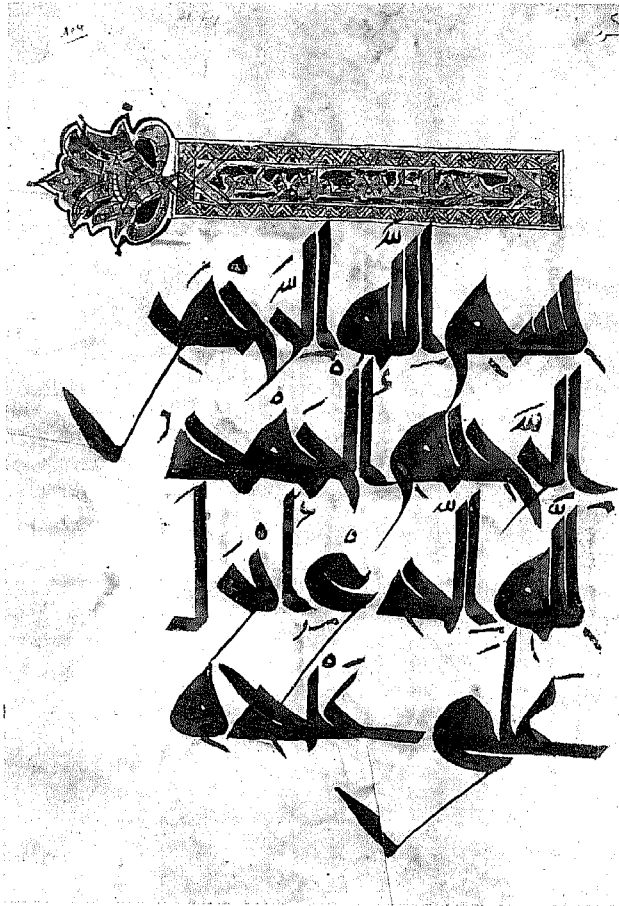 بِسْمِ اللَّهِ الرَّحْمَٰنِ
الرَّحِيمِ الْحَمْدُ
لِلَّهِ الَّذِي أَنْزَلَ
عَلَىٰ عَبْدِهِ